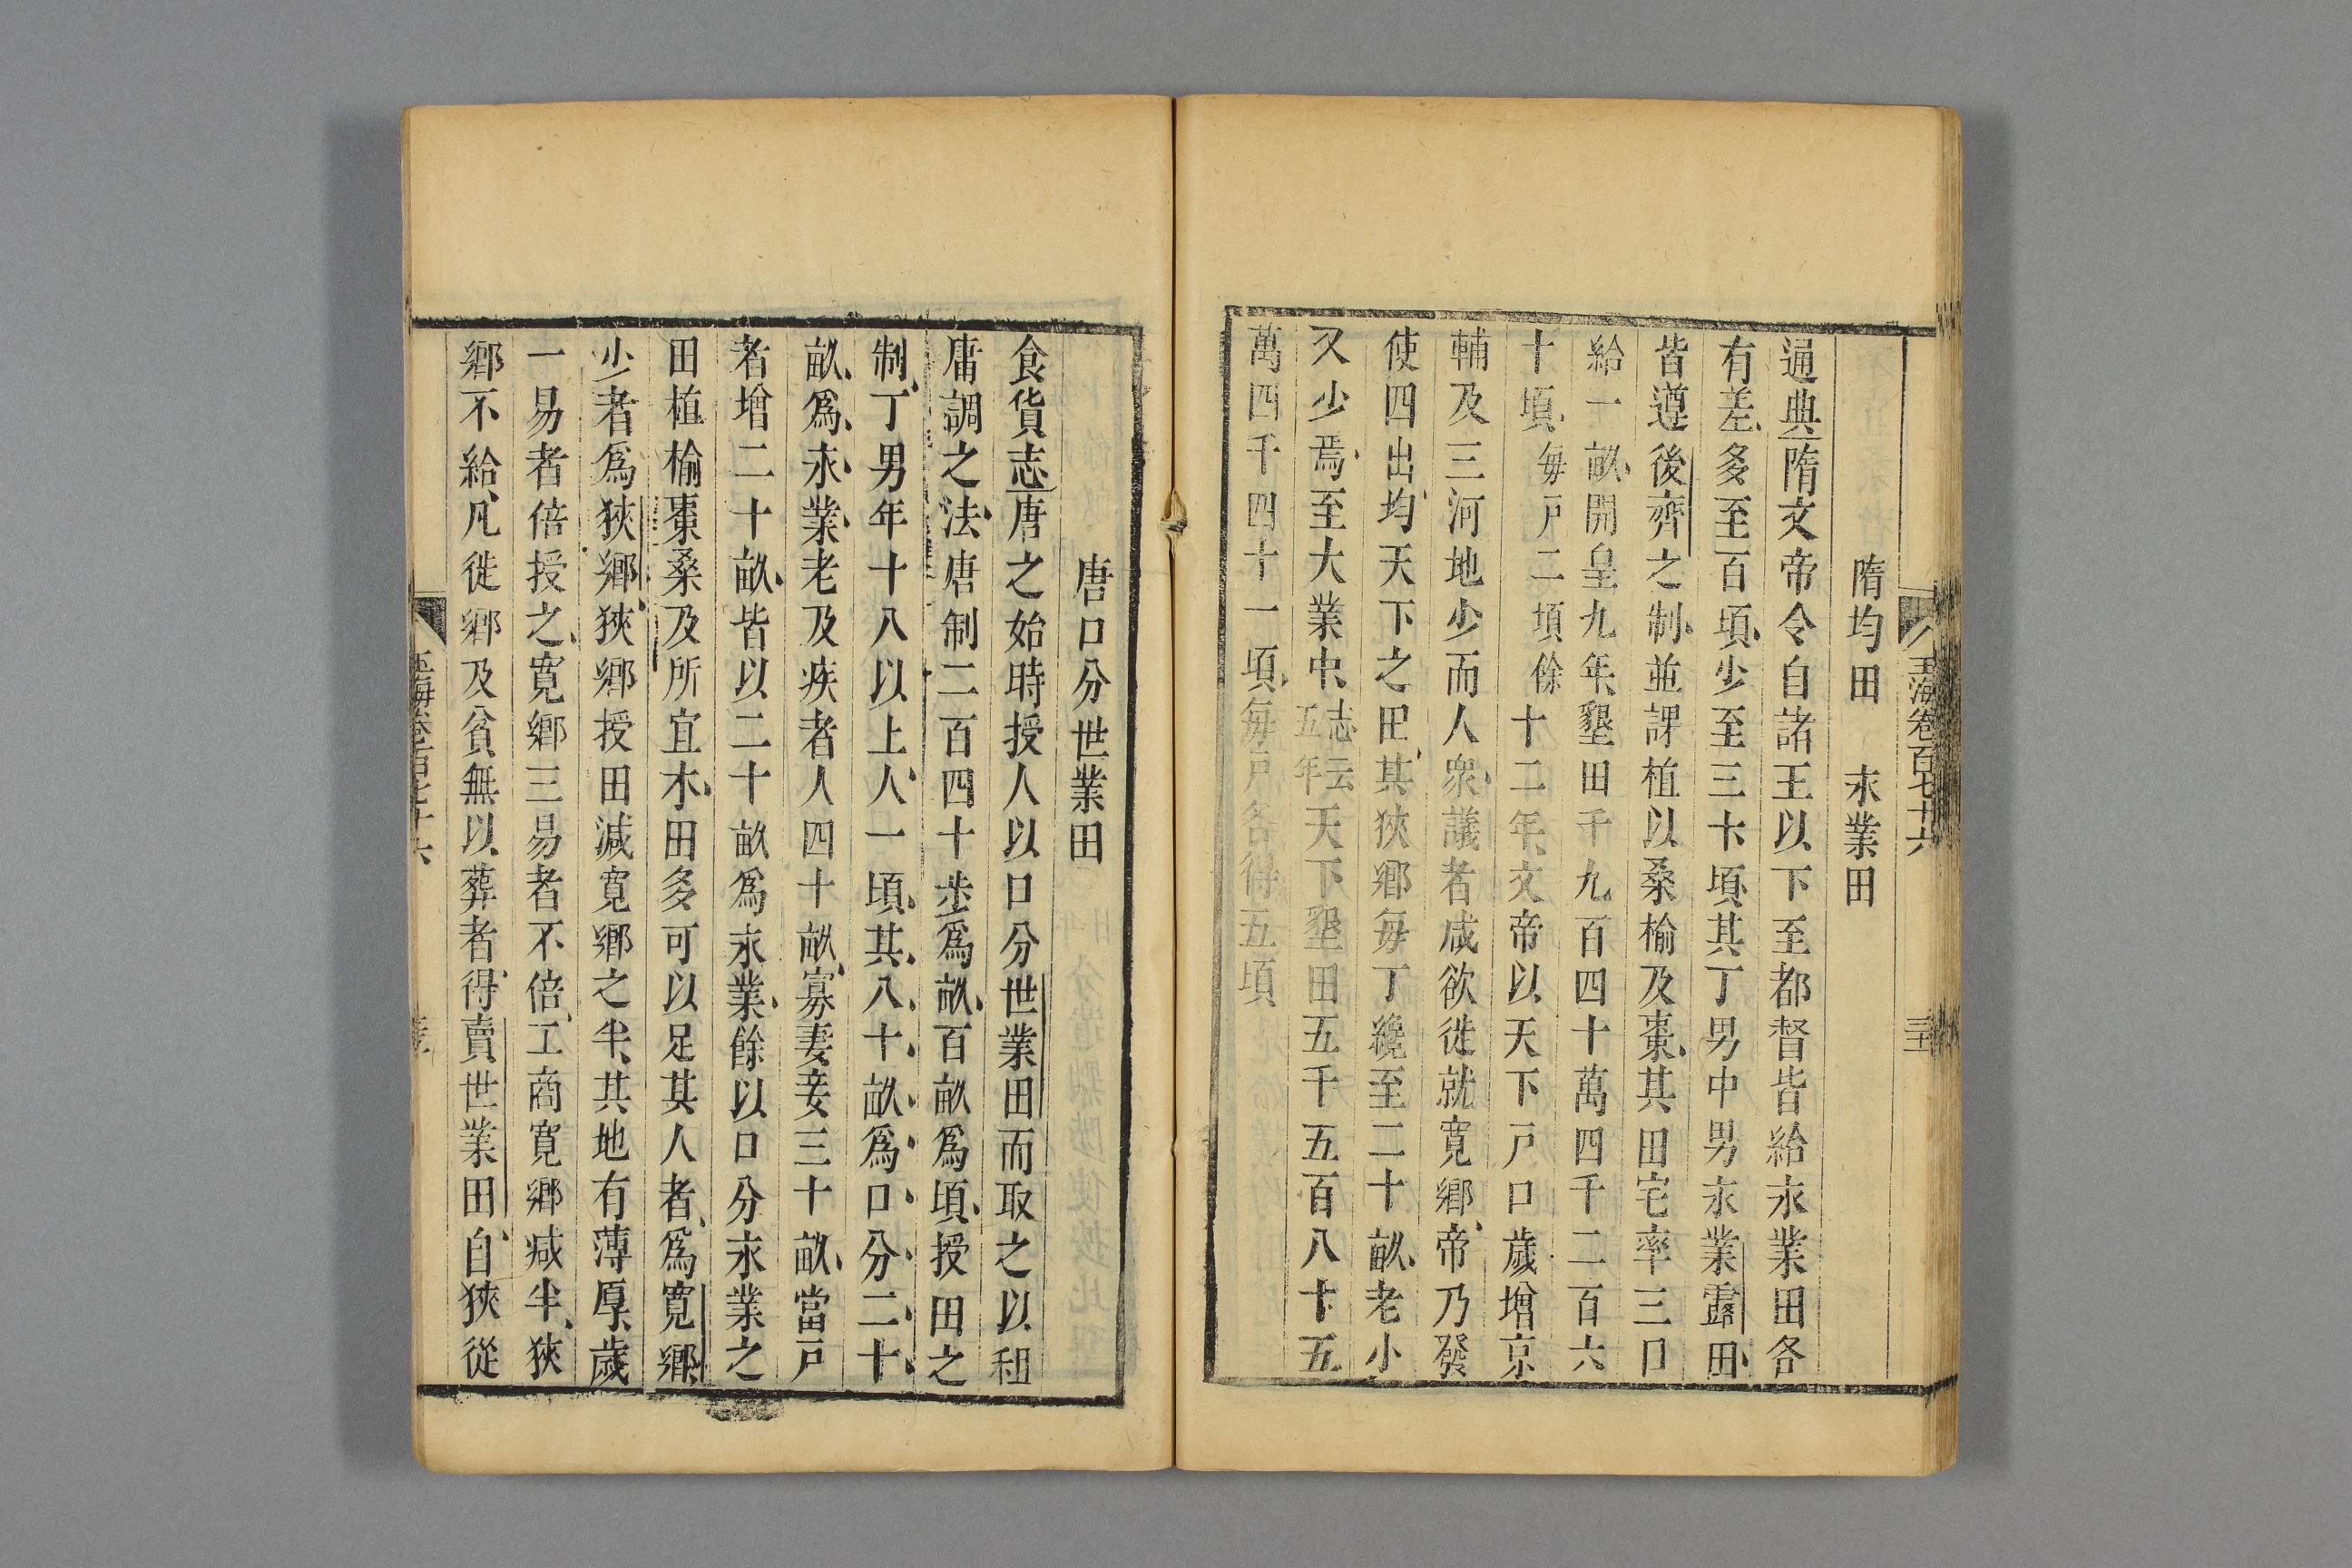 玉海卷百七十六
隋均田　永業田
通典隋文帝令自諸王以下至都督皆給永業田各
有差多至百頃少至三十頃其丁男中男永業露田
皆遵後齊之制並課植以桑榆及棗其田宅率三口
給一畝開皇九年墾田千九百四十萬四千二百六
十頃每戸二頃餘十二年文帝以天下戸口歲增京
輔及三河地少而人衆議者咸欲徙就寛鄉帝乃發
使四出均天下之田其狹鄉每丁纔至二十畝老小
又少焉至大業中志云五年天下墾田五千五百八十五
萬四千四十一頃每戸各得五頃
唐口分世業田
食貨志唐之始時授人以口分世業田而取之以租
庸調之法唐制二百四十步爲畝百畝爲頃授田之
制丁男年十八以上人一頃其八十畝爲口分二十
畝爲永業老及疾者人四十畝寡妻妾三十畝當戸
者增二十畝皆以二十畝爲永業餘以口分永業之
田植榆棗桑及所宜木田多可以足其人者爲寛鄉
少者爲狹鄉狹鄉授田減寛鄉之半其地有薄厚歲
一易者倍授之寛鄉三易者不倍工商寛鄉减半狹
鄉不給凡徙鄉及貧無以葬者得賣世業田自狹從
玉海卷百七十六